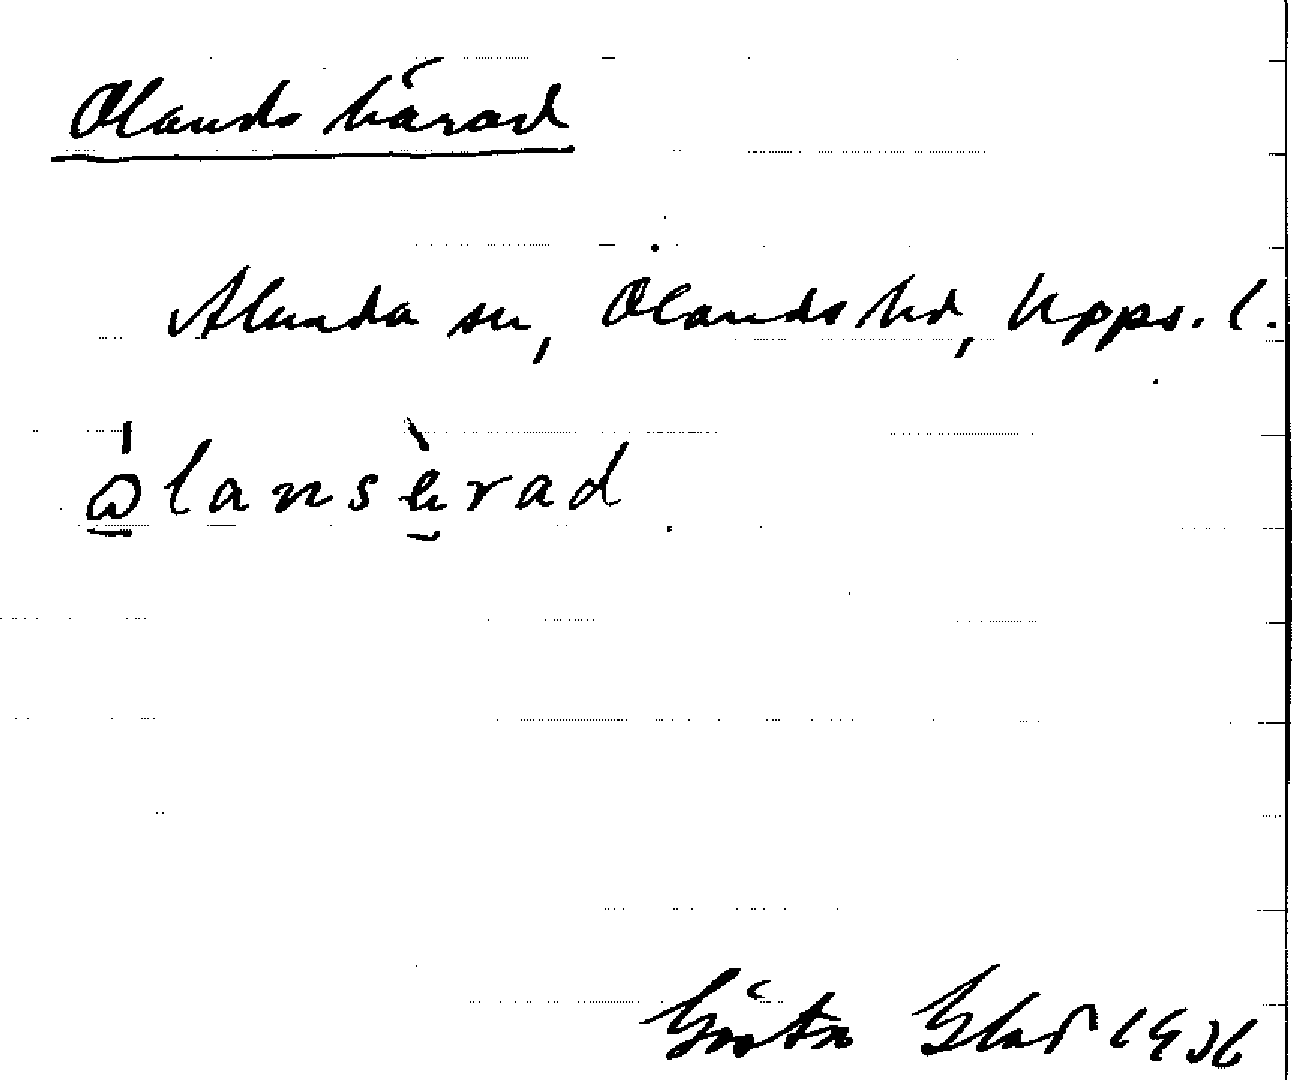 Olands härad
Alunda sn, Olands hd, Upps. l.
ølansèrad
Gösta 1936